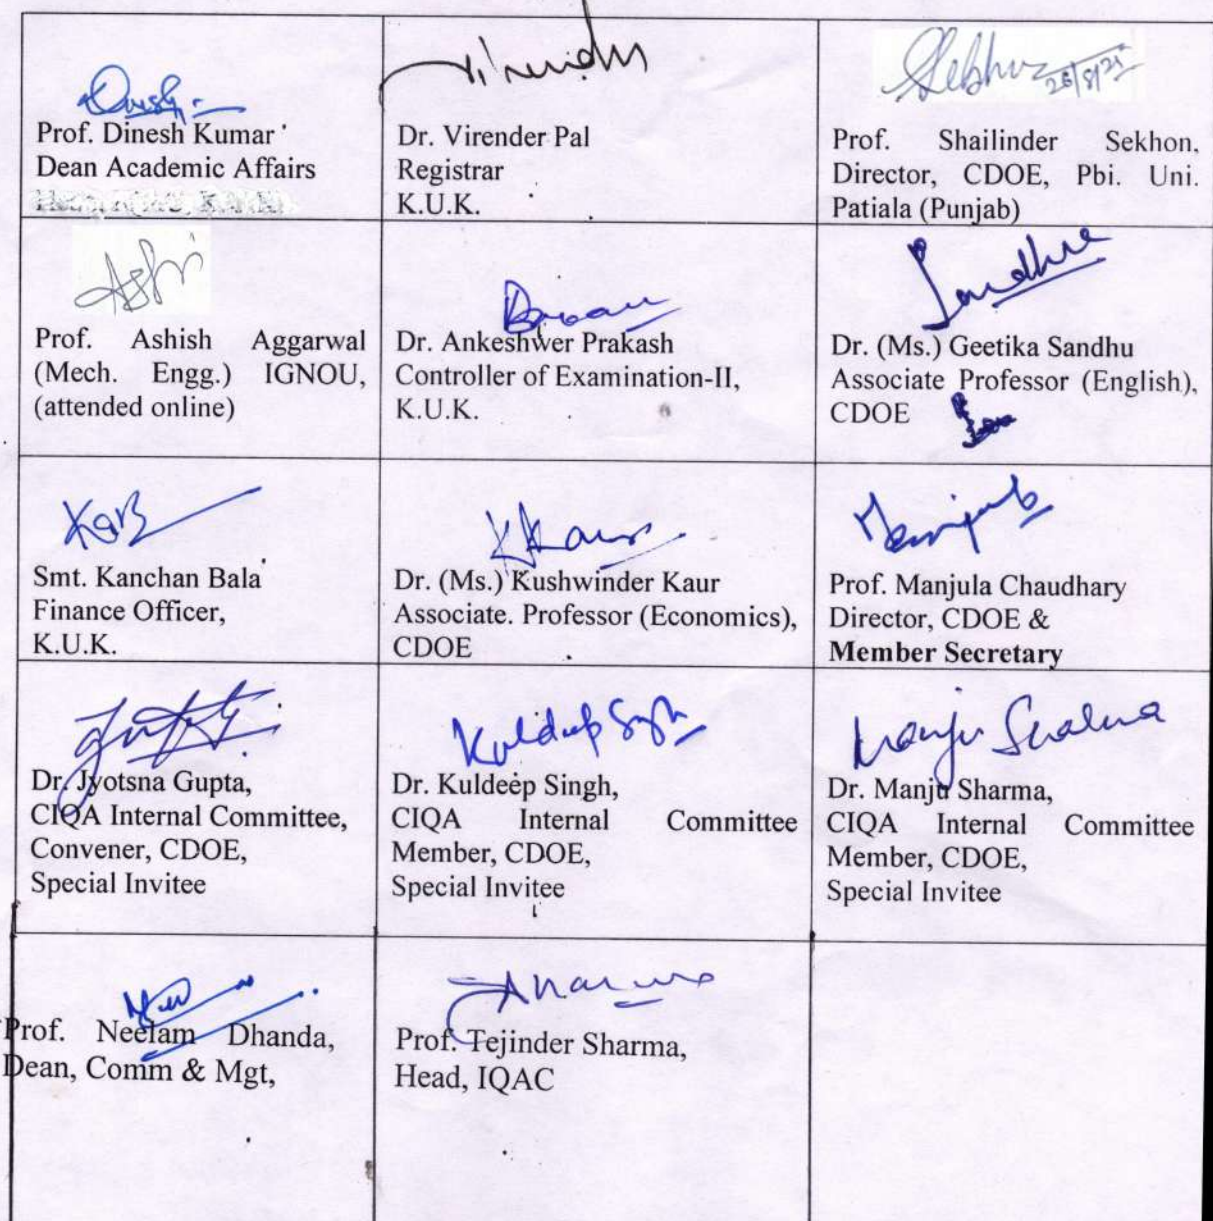 Dinesh
Prof. Dinesh Kumar
Dean Academic Affairs
Virender
Dr. Virender Pal
Registrar
K.U.K.
Sekhon
Prof. Shailinder Sekhon,
Director, CDOE, Pbi. Uni.
Patiala (Punjab)
Ashi
Prof. Ashish Aggarwal
(Mech. Engg.) IGNOU,
(attended online)
Dr. Ankeshwer Prakash
Controller of Examination-II,
K.U.K.
Sandhu
Dr. (Ms.) Geetika Sandhu
Associate Professor (English),
CDOE
Smt. Kanchan Bala
Finance Officer,
K.U.K.
KKaur
Dr. (Ms.) Kushwinder Kaur
Associate. Professor (Economics),
CDOE
Prof. Manjula Chaudhary
Director, CDOE &
Member Secretary
Dr. Jyotsna Gupta,
CIQA Internal Committee,
Convener, CDOE,
Special Invitee
Kuldeep Singh
Dr. Kuldeep Singh,
CIQA Internal Committee
Member, CDOE,
Special Invitee
Manju Sharma
Dr. Manju Sharma,
CIQA Internal Committee
Member, CDOE,
Special Invitee
Prof. Neelam Dhanda,
Dean, Comm & Mgt,
Prof. Tejinder Sharma,
Head, IQAC